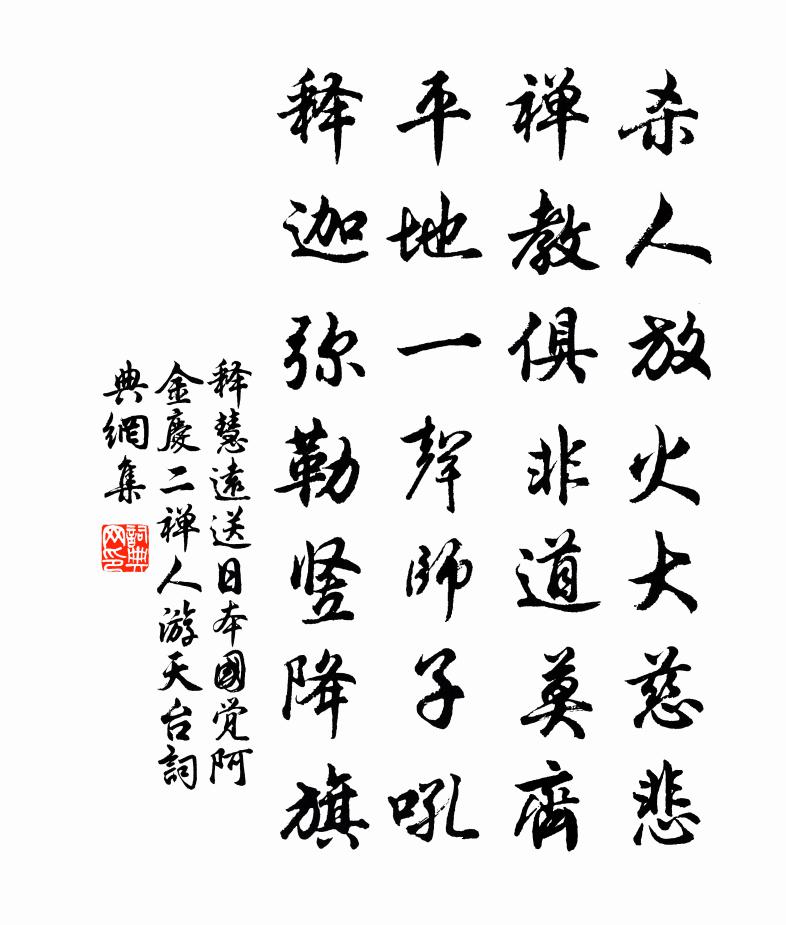 杀人放火大慈悲
禅教俱非道莫齊
平地一聲师子吼
释迦弥勒竖降旗
释慧遠送日本國觉阿
金慶二禅人游天台詞
典網集
詞典网印